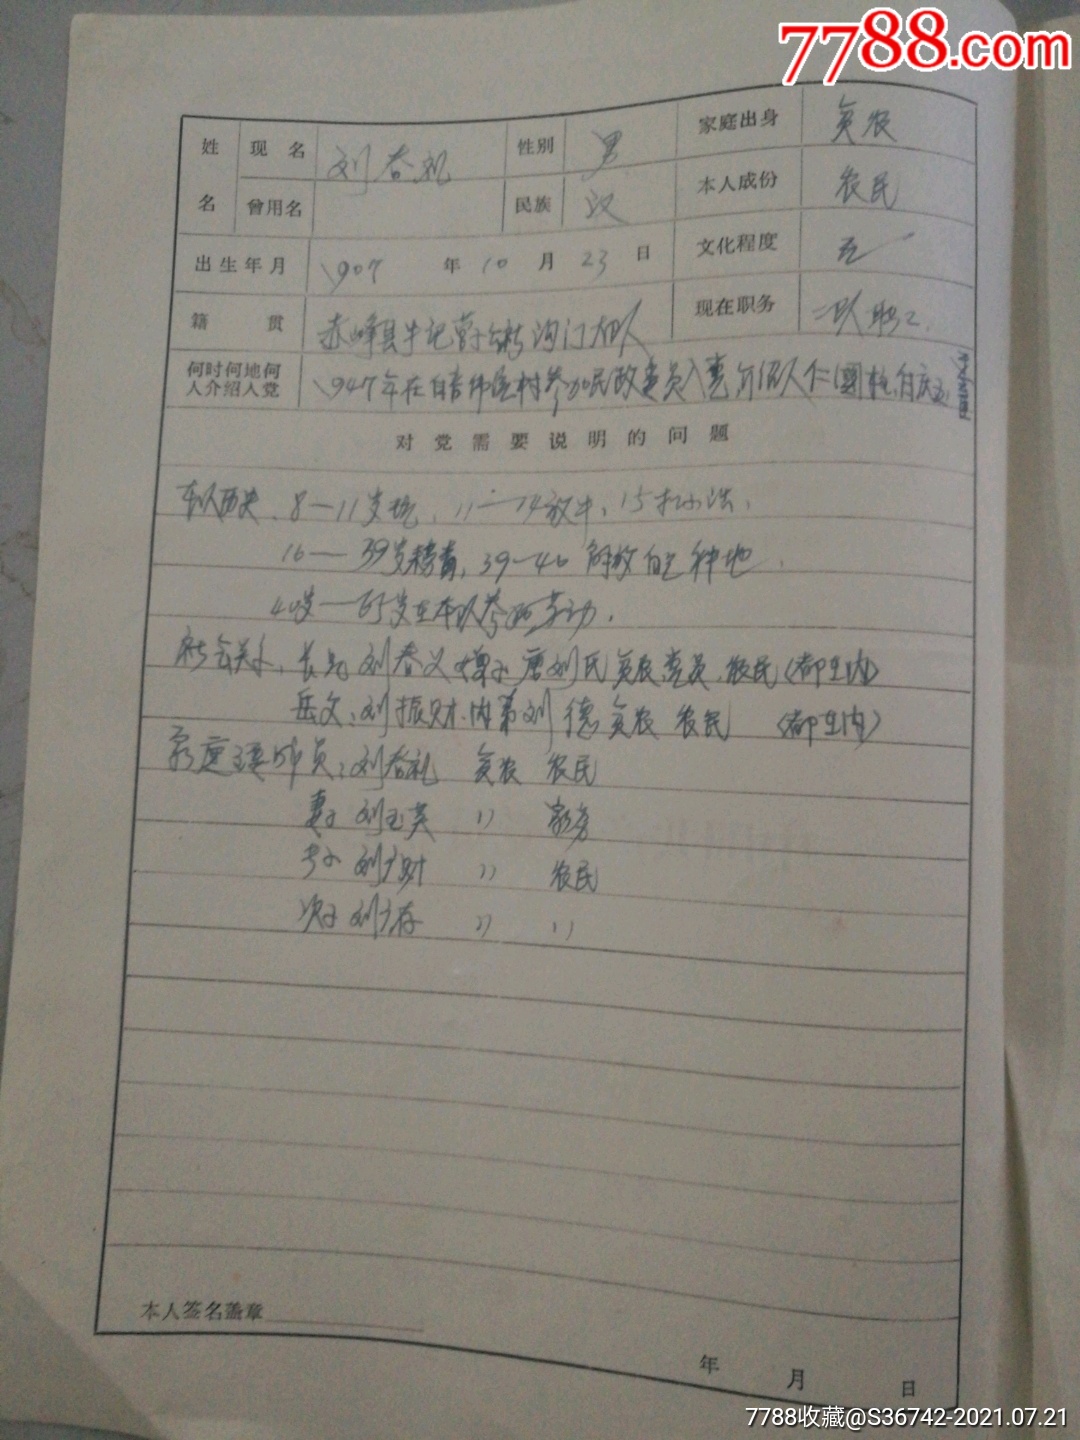 7788.com
姓名 现名 刘春礼 性别 男 家庭出身 贫农
曾用名 民族 汉 本人成份 农民
出生年月 1907 年 10 月 23 日 文化程度 无
籍贯 赤峰县牛 营子 沟门大队 现在职务
何时何地何人介绍入党 1947年在 村参加 介绍人
对党需要说明的问题
本人历史、8—11岁 、11—14放牛、15
16—39岁 , 39—40 解放自己种地.
40岁—65岁在本队参加劳动.
社会关系、长兄刘春义 唐刘氏 贫农党员、农民(都在内)
岳父:刘振财、内弟刘德 贫农 农民 (都在内)
家庭主要成员:刘春礼 贫农 农民
妻子 刘玉英 〃 家务
长子 刘广财 〃 农民
次子 刘广存 〃 〃
本人签名盖章
年 月 日
7788收藏@S36742-2021.07.21